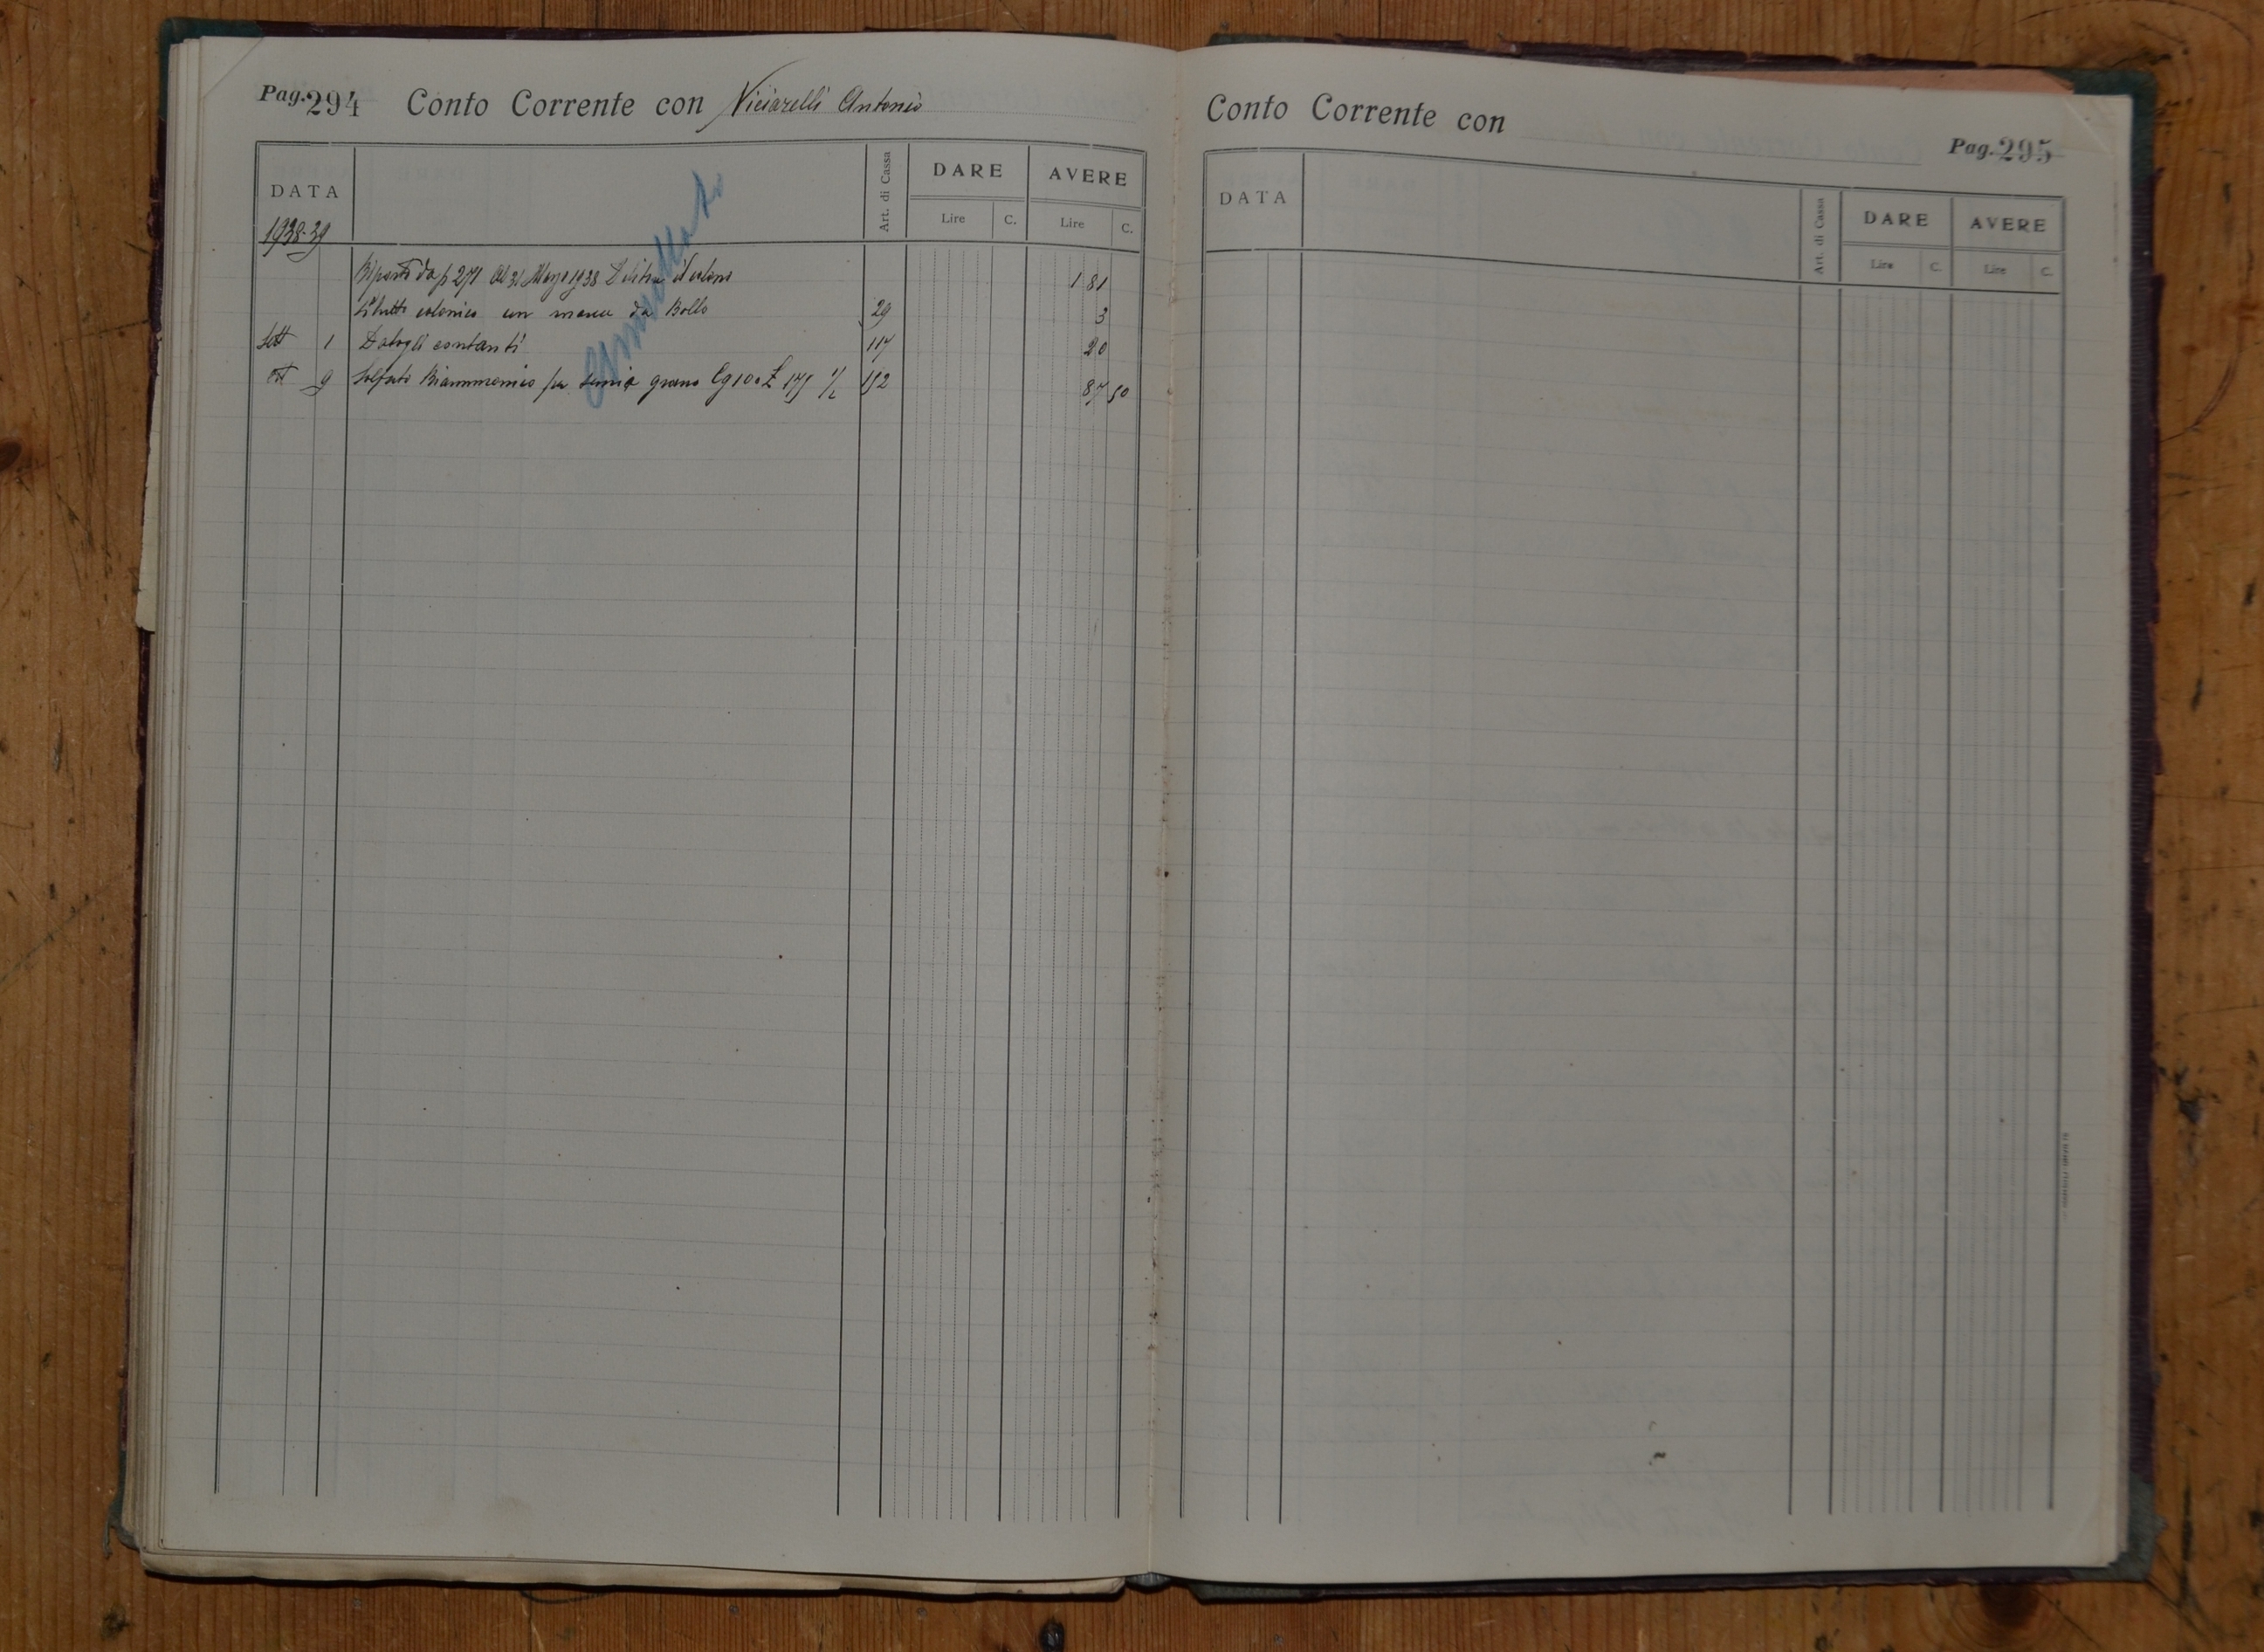 Pag. 294 Conto Corrente con Viciarelli Antonio
DATA
Art. di Cassa
DARE AVERE
Lire C. Lire C.
1938-39
Riporto da p 271 Al 31 Mag 1938 Debito Colono 181
Libretto colonico con marca da Bollo 29 3
Sett 1 Datogli contanti 117 20
Ott 9 Solfato Biammonico per semia grano Cg 100 £ 175 1/2 152 87 50
Annullato
Conto Corrente con
Pag. 295
DATA
Art. di Cassa
DARE AVERE
Lire C. Lire C.